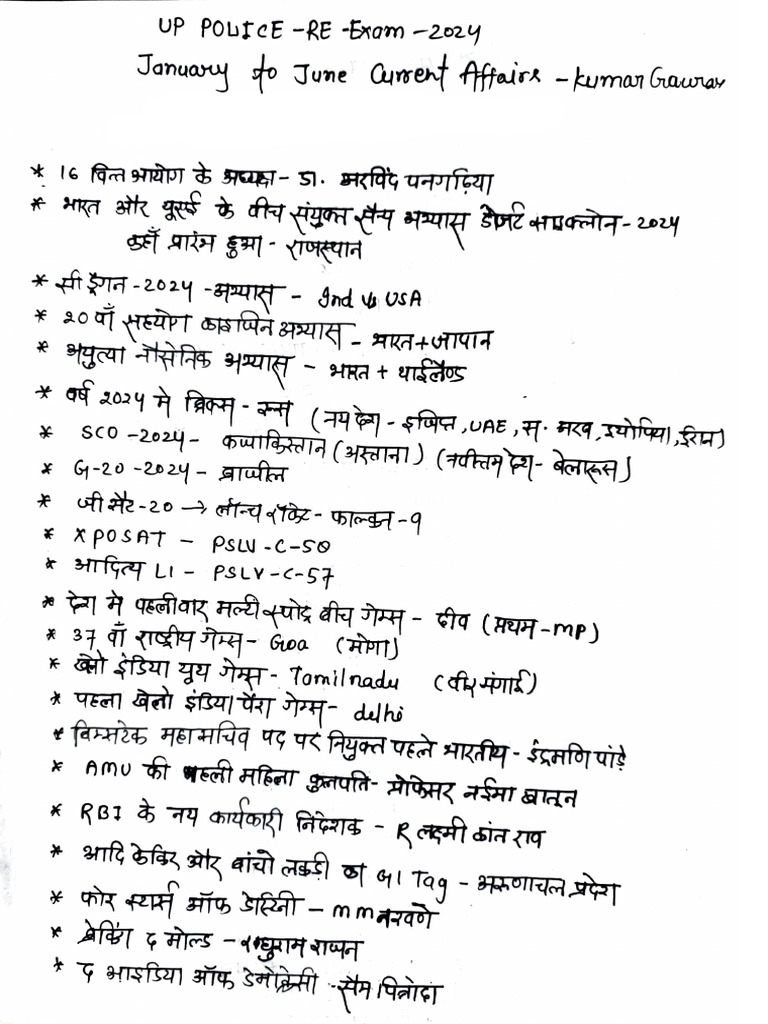 UP POLICE -RE -Exam -2024
January to June Current Affairs - Kumar Gaurav
* 16 वित्त आयोग के अध्यक्ष - डा. अरविंद पनगढ़िया
* भारत और यूएई के बीच संयुक्त सैन्य अभ्यास डेजर्ट साइक्लोन - 2024
कहाँ प्रारंभ हुआ - राजस्थान
* सी ड्रैगन -2024 -अभ्यास - Ind vs USA
* 20 वाँ सहयोग काइजिन अभ्यास - भारत+जापान
* अयुत्या नौसैनिक अभ्यास - भारत + थाईलैण्ड
* वर्ष 2024 मे ब्रिक्स - रूस (नय देश - इजिप्त, UAE, स. अरब, इथोपिया, ईरान)
* SCO -2024 - कजाकिस्तान (अस्ताना) (नवीनतम देश - बेलारूस)
* G-20 -2024 - ब्राजील
* जी सैट-20 → लॉन्च रॉकेट - फाल्कन -9
* XPOSAT - PSLV -C-58
* आदित्य L1 - PSLV -C-57
* देश मे पहलीवार मल्टी स्पोर्ट्र बीच गेम्स - दीव (प्रथम -MP)
* 37 वाँ राष्ट्रीय गेम्स - Goa (मोगा)
* खेलो इंडिया यूथ गेम्स - Tamilnadu (वीर मंगाई)
* पहला खेलो इंडिया पैरा गेम्स - delhi
* बिम्सटेक महासचिव पद पर नियुक्त पहले भारतीय - इंद्रमणि पांडे
* AMU की पहली महिला कुलपति - प्रोफेसर नईमा खातून
* RBI के नय कार्यकारी निदेशक - R लक्ष्मी कांत राव
* आदि केकिर और वांचो लकड़ी का GI Tag - अरुणाचल प्रदेश
* फोर स्टार्स ऑफ डेस्टिनी - MM नरवणे
* ब्रेकिंग द मोल्ड - रघुराम राजन
* द आइडिया ऑफ डेमोक्रेसी - सैम पित्रोदा